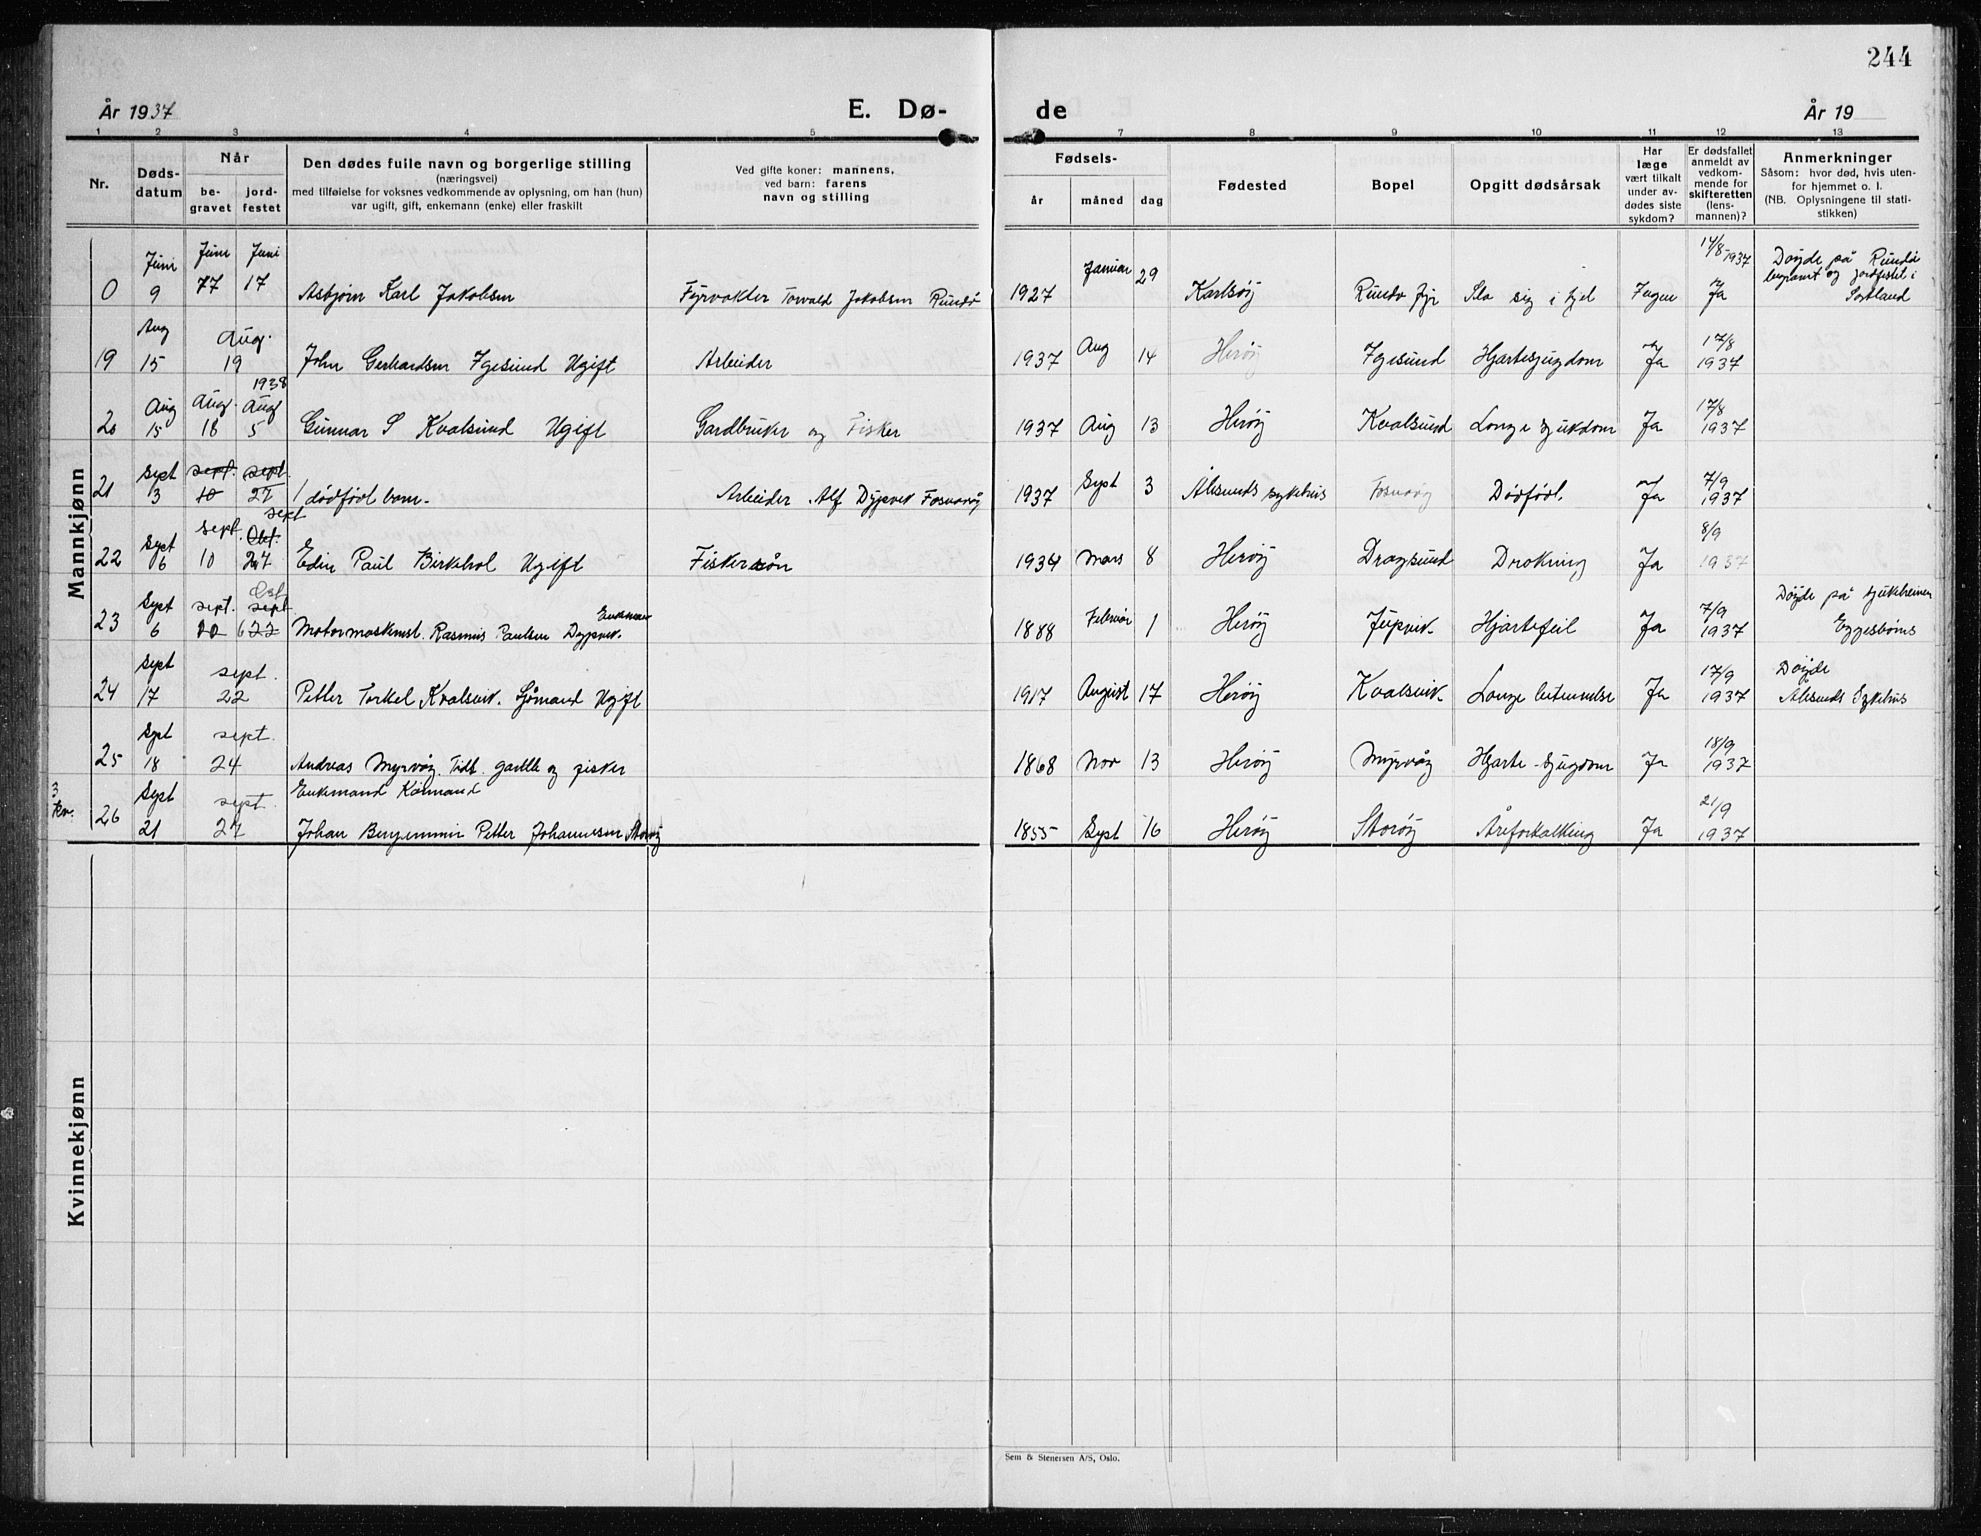 244
År 1937 E. Dø- de År 19
1 2 3 4 5 7 8 9 10 11 12 13
Nr.
Døds-
datum
Når
be-
gravet
jord-
festet
Den dødes fulle navn og borgerlige stilling
(næringsvei)
med tilføielse for voksnes vedkommende av oplysning, om han (hun)
var ugift, gift, enkemann (enke) eller fraskilt
Ved gifte koner: mannens,
ved barn: farens
navn og stilling
Fødsels-
år måned dag
Fødested
Bopel
Opgitt dødsårsak
Har
læge
vært tilkalt
under av-
dødes siste
sykdom?
Er dødsfallet
anmeldt av
vedkom-
mende for
skifteretten
(lens-
mannen)?
Anmerkninger
Såsom: hvor død, hvis uten-
for hjemmet o. l.
(NB. Oplysningene til stati-
stikken)
Mannkjønn
Juni Juni Juni Januar 14/8 1937 Døyde på Rundø
0 9 17 17 Asbjørn Karl Jakobsen Fyrvakter Torvald Jakobsen Rundø 1927 29 Karlsøy Rundø fyr Slo sig i hjel Ingen Ja
begravet og jordfestet i
Sortland
Aug Aug. Aug 17/8
19 15 19 John Gerhardsen Igesund Ugift Arbeider 1937 14 Herøy Igesund Hjartesjugdom Ja 1937
1938
Aug Aug. Aug 17/8
20 15 18 5 Gunnar S Kvalsund Ugift Gardbruker og Fisker 1937 Aug 13 Herøy Kvalsund Lunge sjukdom Ja 1937
Sept sept. sept. Sept 7/9
21 3 10 27 1 dødfødt barn. Arbeider Alf Dypvik Fosnavåg 1937 3 Ålesunds sykehus Fosnavåg Dødfødt. Ja 1937
sept
Sept sept. Okt. 8/9
22 6 10 27 Edin Paul Birkehol Ugift Fiskersøn 1934 Mars 8 Herøy Dragsund Drukning Ja 1937
Okt
Sept sept. sept. Enkemann Februar 7/9 Døyde på sjukeheimen
23 6 10 6 22 Motormaskinist. Rasmus Paulsen Dypvik. 1888 1 Herøy Jupvik. Hjartefeil Ja 1937 Eggesbønes
Sept sept. 17/9 Døyde
24 17 22 Petter Torkel Kvalsvik. Sjømand Ugift 1917 August 17 Herøy Kvalsvik. Lunge betennelse Ja 1937 Ålesunds Sykehus
Sept sept. 18/9
25 18 24 Andreas Myrvåg. Tidl. gardb og fisker 1868 Nov 13 Herøy Myrvåg Hjarte-sjugdom Ja 1937
3
kv.
Sept sept. Enkemand Kårmand 21/9
26 21 27 Johan Benjammin Petter Johannesen Storøy 1855 Sept 16 Herøy Storøy Åreforkalking Ja 1937
Kvinnekjønn
Sem & Stenersen A/S, Oslo.